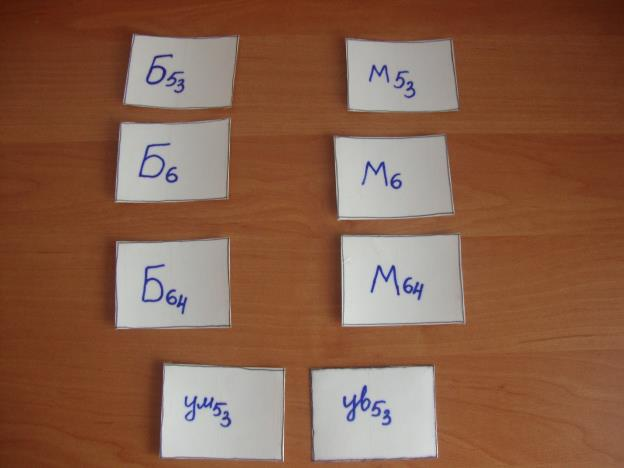 Б53
М53
Б6
М6
Б64
М64
ум53
ув53